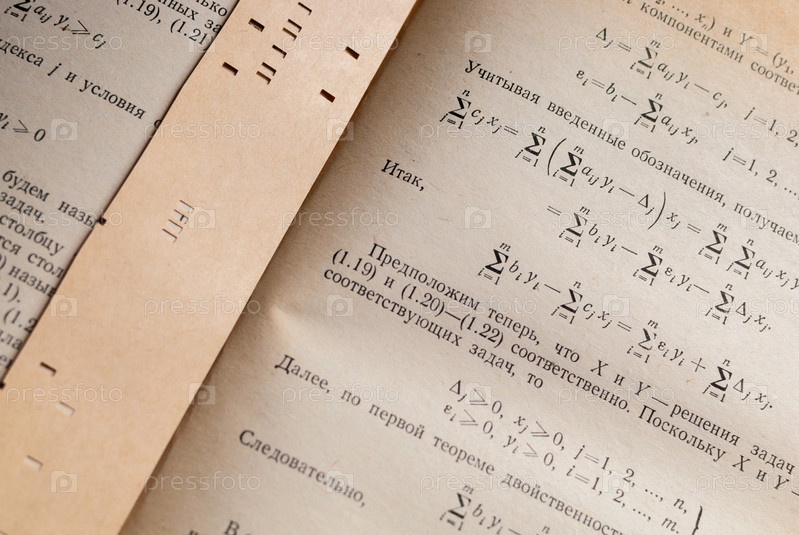 (1.19), (1.21)
∑ a_{ij} y_i ⩾ c_j
i=1
индекса j и условия
y_i ⩾ 0
будем назы
задач.
столбцу
x_n) и Y = (y_1,
компонентами соответ
Δ_j = ∑_{i=1}^{m} a_{ij} y_i − c_j, j=1, 2,
ε_i = b_i − ∑_{j=1}^{n} a_{ij} x_j,
Учитывая введенные обозначения, получаем
∑_{j=1}^{n} c_j x_j = ∑_{j=1}^{n} (∑_{i=1}^{m} a_{ij} y_i − Δ_j) x_j = ∑ ∑ a_{ij} x_j y
= ∑_{i=1}^{m} b_i y_i − ∑_{i=1}^{m} ε_i y_i − ∑_{j=1}^{n} Δ_j x_j.
Итак,
∑_{i=1}^{m} b_i y_i − ∑_{j=1}^{n} c_j x_j = ∑_{i=1}^{m} ε_i y_i + ∑_{j=1}^{n} Δ_j x_j.
Предположим теперь, что X и Y — решения задач
(1.19) и (1.20)—(1.22) соответственно. Поскольку X и Y —
соответствующих задач, то
Δ_j ⩾ 0, x_j ⩾ 0, j=1, 2, ..., n,
ε_i ⩾ 0, y_i ⩾ 0, i=1, 2, ..., m. }
Далее, по первой теореме двойственности
∑ b_i y_i −
Следовательно,
pressfoto